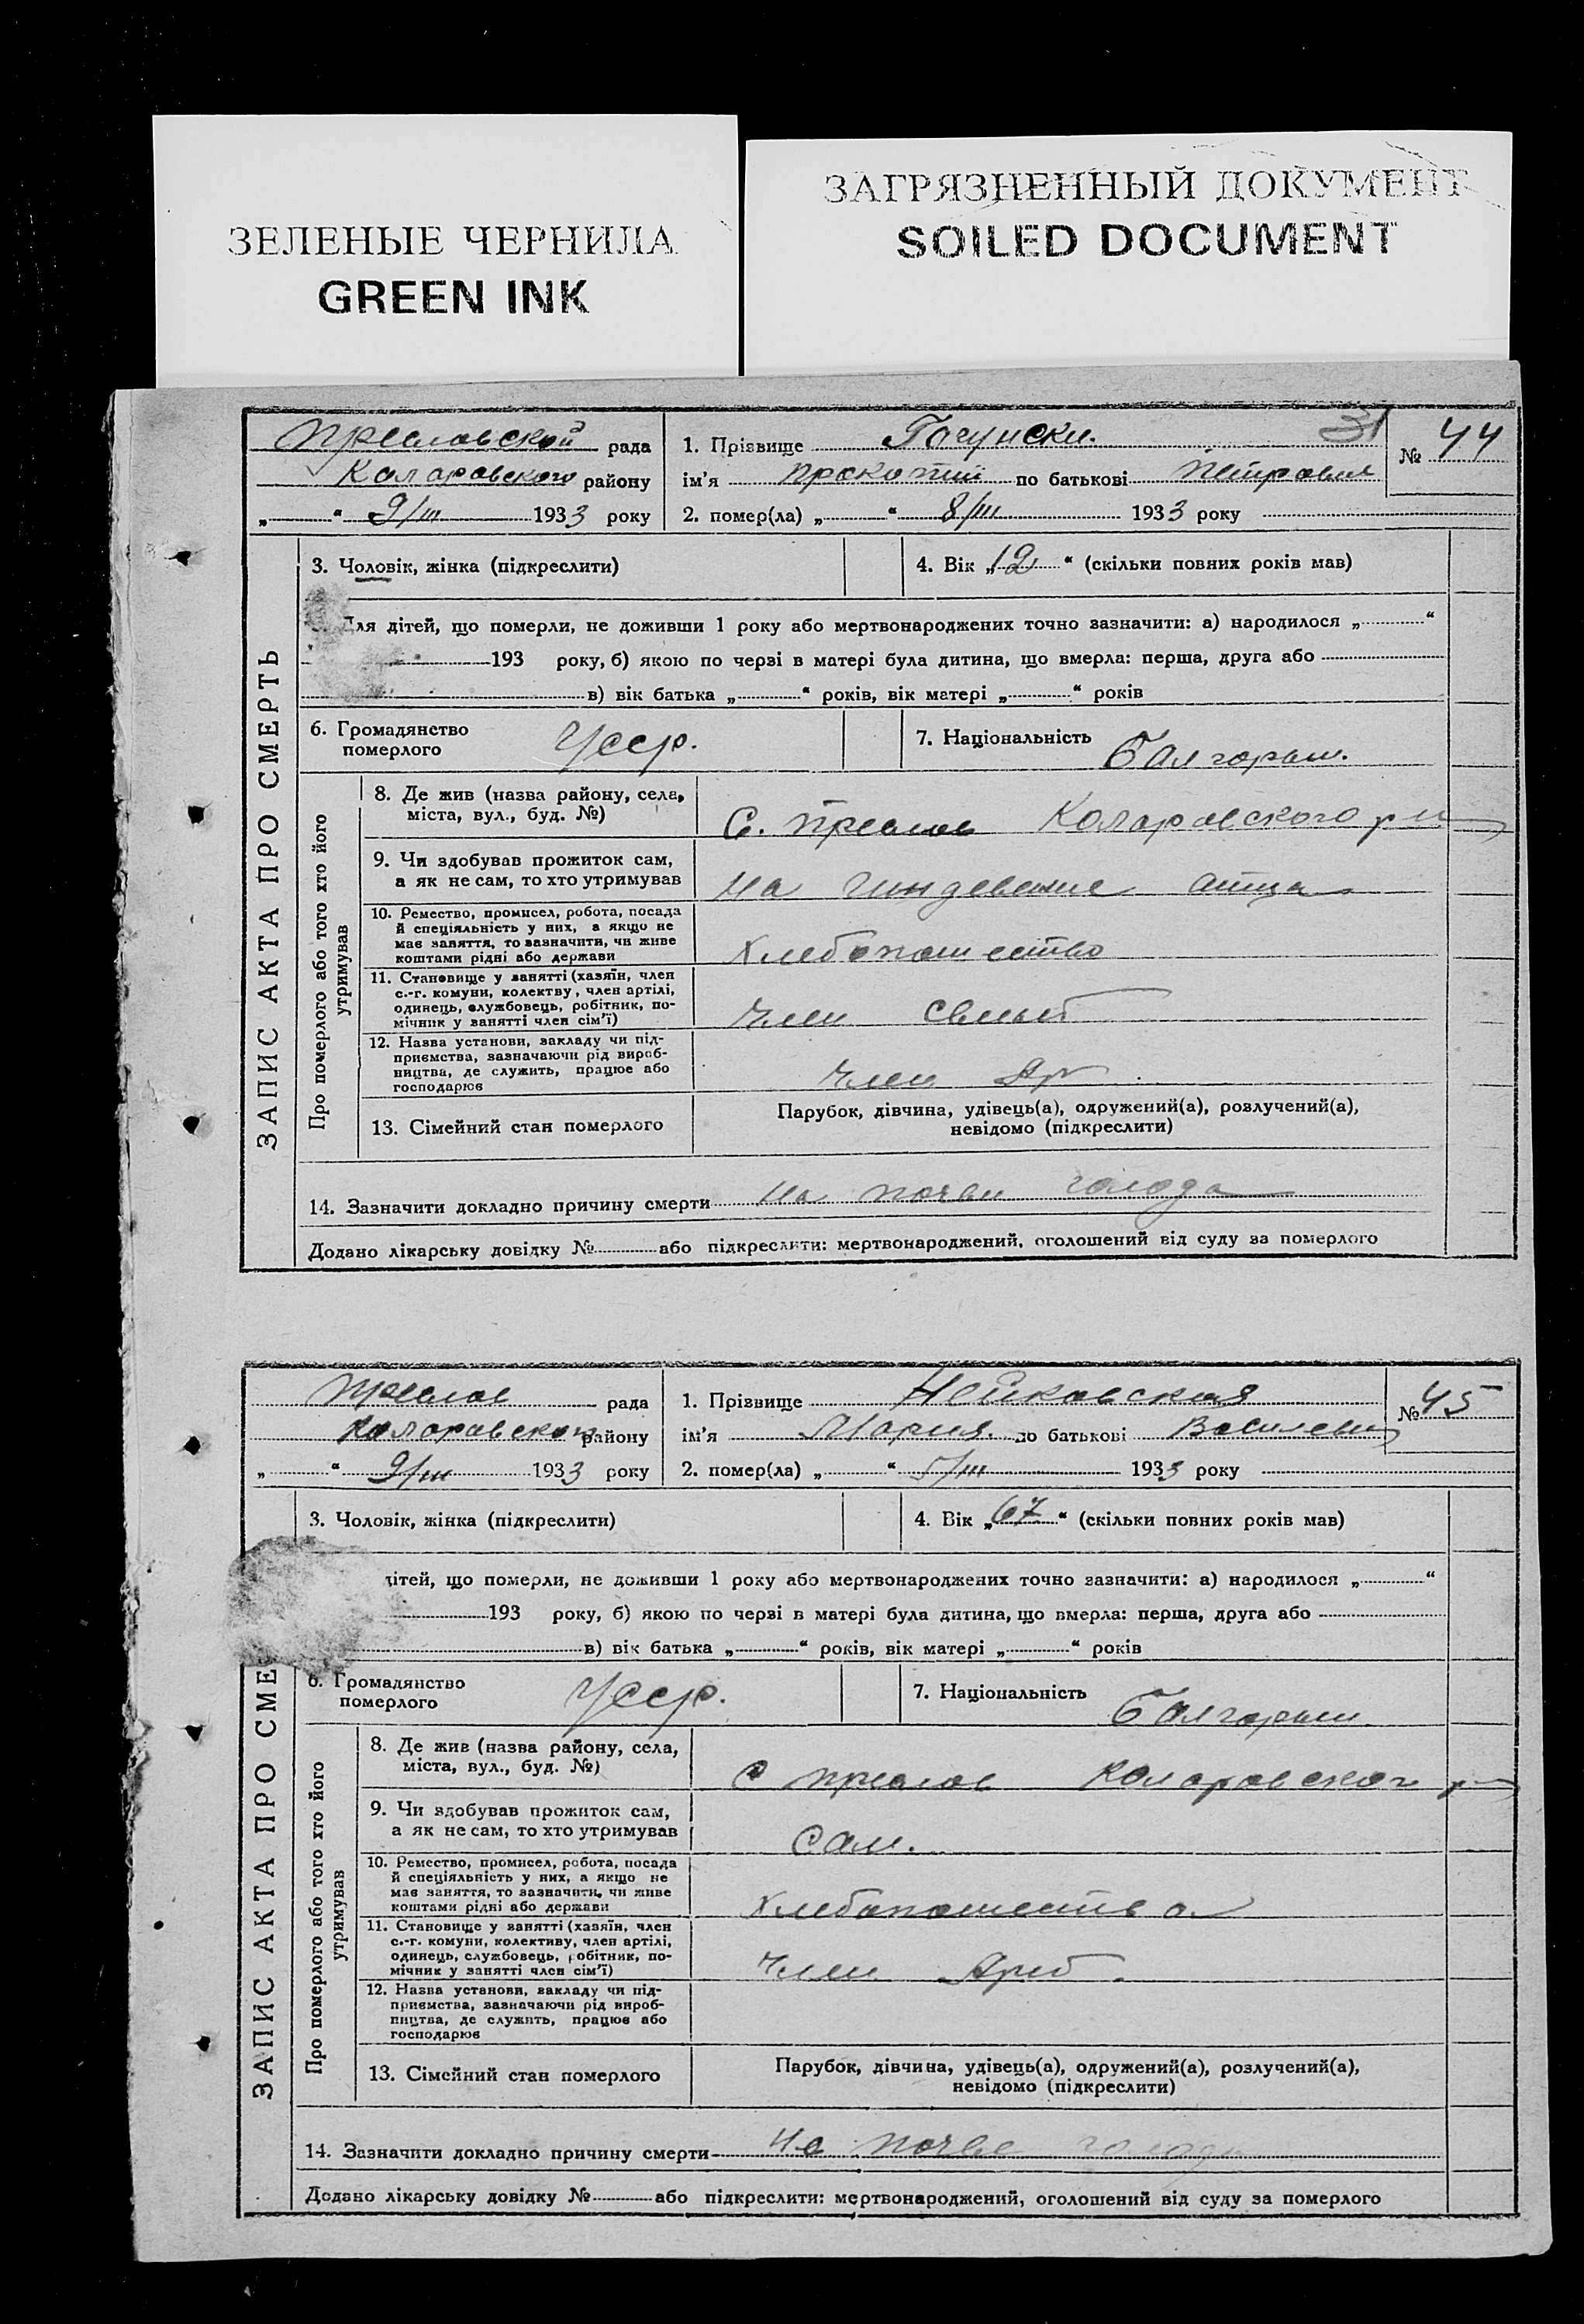 ЗЕЛЕНЫЕ ЧЕРНИЛА
GREEN INK
ЗАГРЯЗНЕННЫЙ ДОКУМЕНТ
SOILED DOCUMENT
31
Преславской рада
Коларовского району
„ “ 9/III 1933 року
1. Прізвище
ім’я Прокопий по батькові Петрович
№ 44
2. помер(ла) „ “ 8/III 1933 року
ЗАПИС АКТА ПРО СМЕРТЬ
3. Чоловік, жінка (підкреслити)
4. Вік „12“ (скільки повних років мав)
Для дітей, що померли, не доживши 1 року або мертвонароджених точно зазначити: а) народилося „ “
193 року, б) якою по черзі в матері була дитина, що вмерла: перша, друга або
в) вік батька „ “ років, вік матері „ “ років
6. Громадянство
померлого
Усср.
7. Національність
Про померлого або того хто його
утримував
8. Де жив (назва району, села,
міста, вул., буд. №)
С. Преслав Коларовского
9. Чи здобував прожиток сам,
а як не сам, то хто утримував
на
10. Ремество, промисел, робота, посада
й спеціяльність у них, а якщо не
має заняття, то зазначити, чи живе
коштами рідні або держави
Хлебопашество
11. Становище у занятті (хазяїн, член
с.-г. комуни, колектву, член артілі,
одинець, службовець, робітник, по-
мічник у занятті член сім’ї)
Член
12. Назва установи, закладу чи під-
приємства, зазначаючи рід вироб-
ництва, де служить, працює або
господарює
Член
13. Сімейний стан померлого
Парубок, дівчина, удівець(а), одружений(а), розлучений(а),
невідомо (підкреслити)
14. Зазначити докладно причину смерти на почви голода
Додано лікарську довідку № або підкреслити: мертвонароджений, оголошений від суду за померлого
Преслав рада
Коларовского району
„ “ 9/III 1933 року
1. Прізвище Нейковская
ім’я Мария. по батькові
№ 45
2. помер(ла) „ “ 5/III 1933 року
ЗАПИС АКТА ПРО СМЕ
3. Чоловік, жінка (підкреслити)
4. Вік „67“ (скільки повних років мав)
дітей, що померли, не доживши 1 року або мертвонароджених точно зазначити: а) народилося „ “
193 року, б) якою по черзі в матері була дитина, що вмерла: перша, друга або
в) вік батька „ “ років, вік матері „ “ років
6. Громадянство
померлого
Усср.
7. Національність
Про померлого або того хто його
утримував
8. Де жив (назва району, села,
міста, вул., буд. №)
С Преслав
9. Чи здобував прожиток сам,
а як не сам, то хто утримував
Сам.
10. Ремество, промисел, робота, посада
й спеціяльність у них, а якщо не
має заняття, то зазначити, чи живе
коштами рідні або держави
Хлебопашество
11. Становище у занятті (хазяїн, член
с.-г. комуни, колективу, член артілі,
одинець, службовець, робітник, по-
мічник у занятті член сім’ї)
Член
12. Назва установи, закладу чи під-
приємства, зазначаючи рід вироб-
ництва, де служить, працює або
господарює
13. Сімейний стан померлого
Парубок, дівчина, удівець(а), одружений(а), розлучений(а),
невідомо (підкреслити)
14. Зазначити докладно причину смерти на почве
Додано лікарську довідку № або підкреслити: мертвонароджений, оголошений від суду за померлого